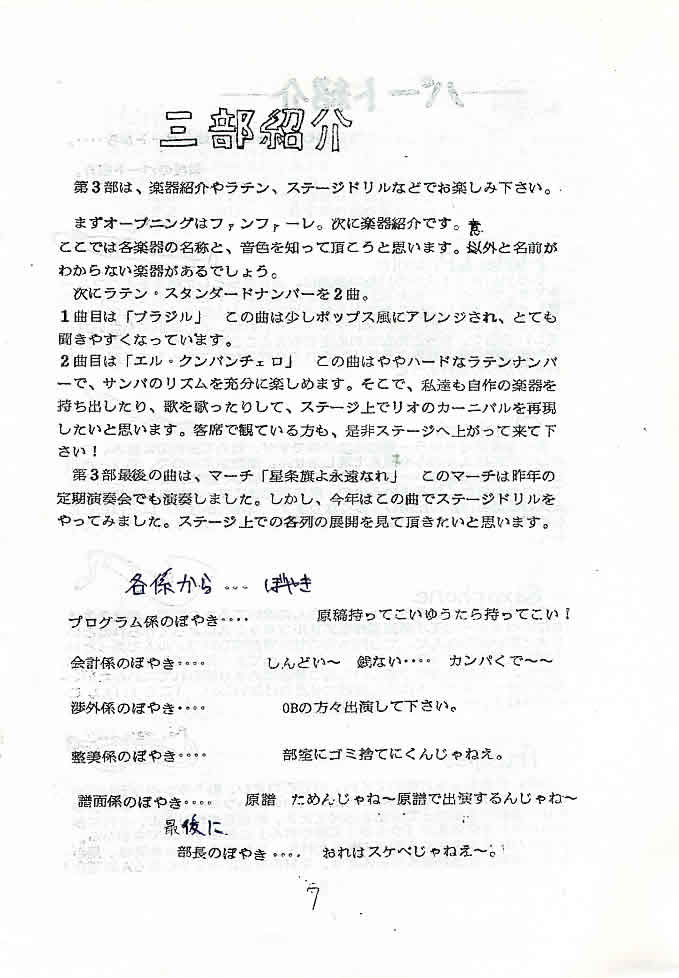 三部紹介
第3部は、楽器紹介やラテン、ステージドリルなどでお楽しみ下さい。
まずオープニングはファンファーレ。次に楽器紹介です。
意
ここでは各楽器の名称と、音色を知って頂こうと思います。以外と名前が
わからない楽器があるでしょう。
次にラテン・スタンダードナンバーを2曲。
1曲目は「ブラジル」　この曲は少しポップス風にアレンジされ、とても
聞きやすくなっています。
2曲目は「エル・クンバンチェロ」　この曲はややハードなラテンナンバ
ーで、サンバのリズムを充分に楽しめます。そこで、私達も自作の楽器を
持ち出したり、歌を歌ったりして、ステージ上でリオのカーニバルを再現
したいと思います。客席で観ている方も、是非ステージへ上がって来て下
さい！
第3部最後の曲は、マーチ「星条旗よ永遠なれ」　このマーチは昨年の
定期演奏会でも演奏しました。しかし、今年はこの曲でステージドリルを
やってみました。ステージ上での各列の展開を見て頂きたいと思います。
各係から…ぼやき
プログラム係のぼやき････　原稿持ってこいゆうたら持ってこい！
会計係のぼやき････　しんどい〜　銭ない････　カンパくで〜〜
渉外係のぼやき････　OBの方々出演して下さい。
整美係のぼやき････　部室にゴミ捨てにくんじゃねえ。
譜面係のぼやき････　原譜　ためんじゃね〜原譜で出演するんじゃね〜
最後に
部長のぼやき････　おれはスケベじゃねえ〜。
7